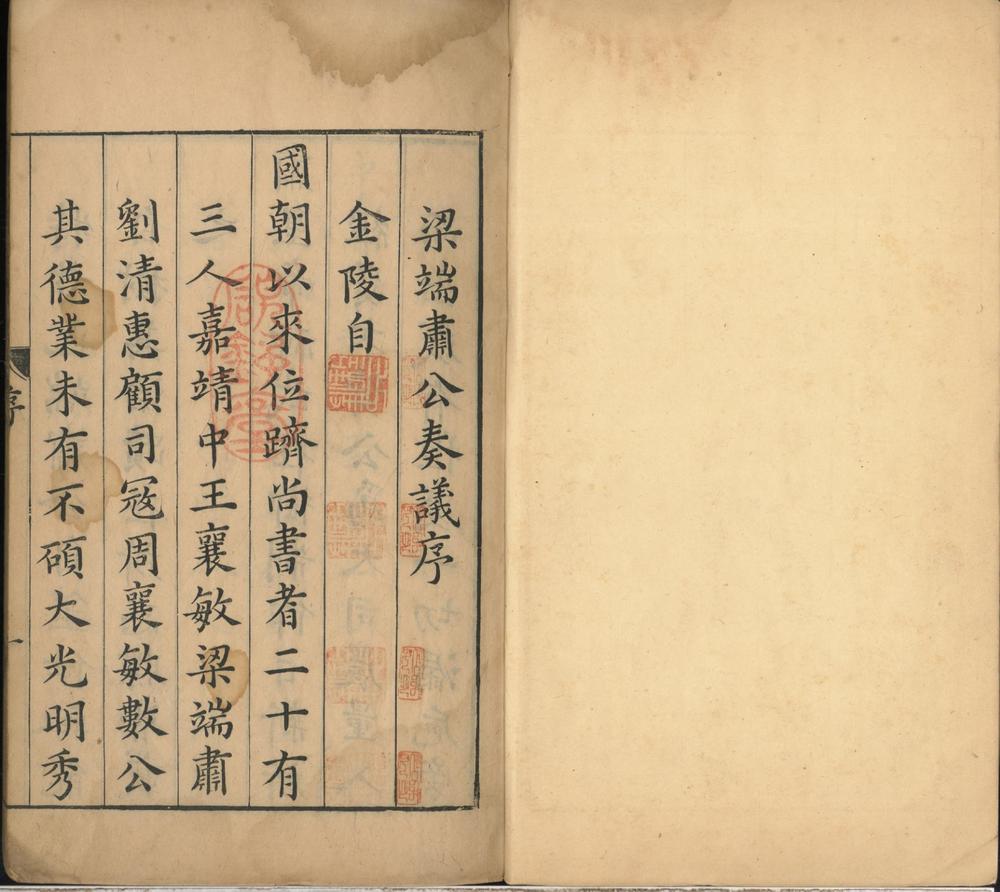 梁端肅公奏議序
金陵自
國朝以來位躋尚書者二十有
三人嘉靖中王襄敏梁端肅
劉清惠顧司寇周襄敏數公
其德業未有不碩大光明秀
序
一